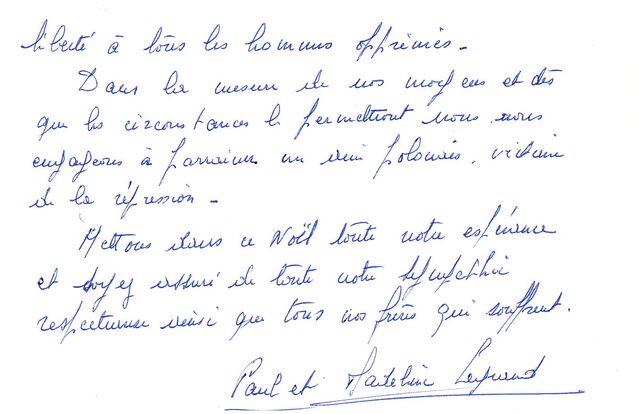 liberté à tous les hommes opprimés.
Dans la mesure de nos moyens et dès
que les circonstances le permettront nous nous
engageons à parrainer un ami polonais, victime
de la répression.
Mettons dans ce Noël toute notre espérance
et soyez assuré de toute notre sympathie
respectueuse ainsi que tous nos frères qui souffrent.
Paul et Madeleine Legrand